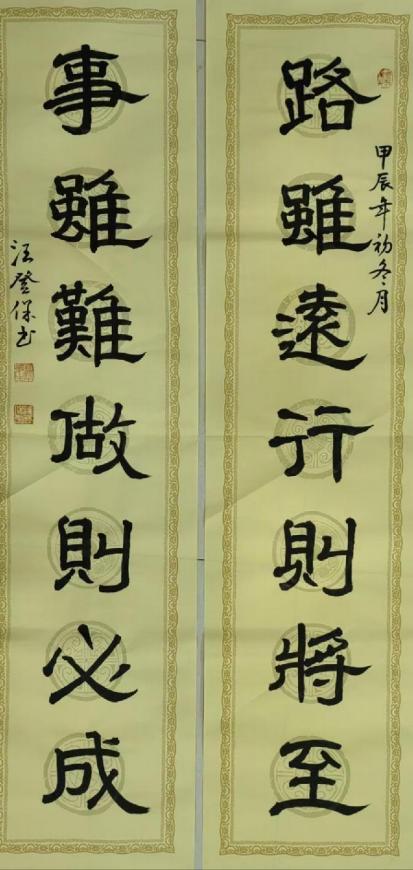 甲辰年初冬月
路雖遠行則將至
事雖難做則必成
汪登保书